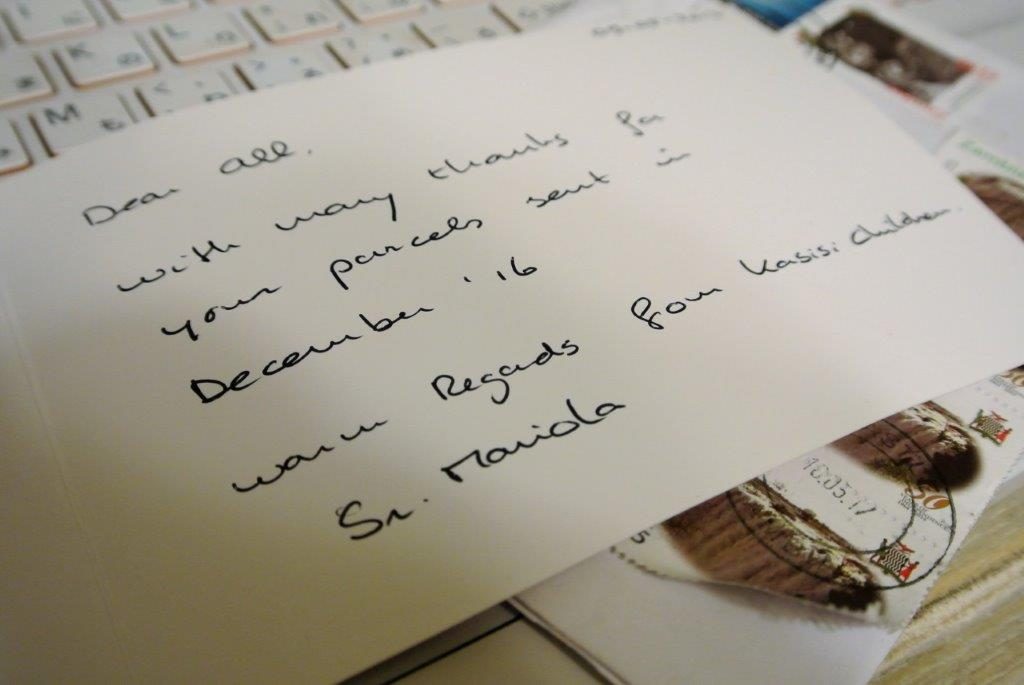 Dear all.
with many thanks for
your parcels sent in
December '16
warm Regards from Kasisi Children.
Sr. Mariola
K
L
M
18.05.17